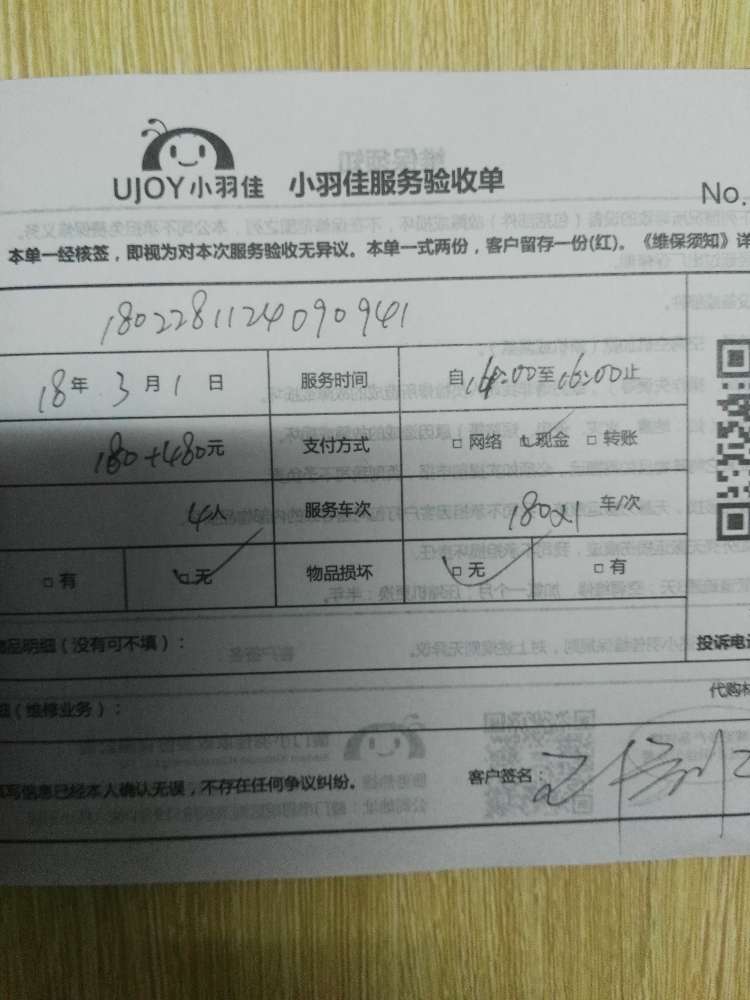 UJOY小羽佳 小羽佳服务验收单
No.
本单一经核签，即视为对本次服务验收无异议。本单一式两份，客户留存一份(红)。《维保须知》详
1802281124090941
18年 3月1日 服务时间 自14:00至16:00止
180+480元 支付方式 □ 网络 □ 现金 □ 转账
4人 服务车次 180×1 车/次
□ 有 □ 无 物品损坏 □ 无 □ 有
品明细（没有可不填）： 投诉电
代购材
（维修业务）：
写信息已经本人确认无误，不存在任何争议纠纷。 客户签名：